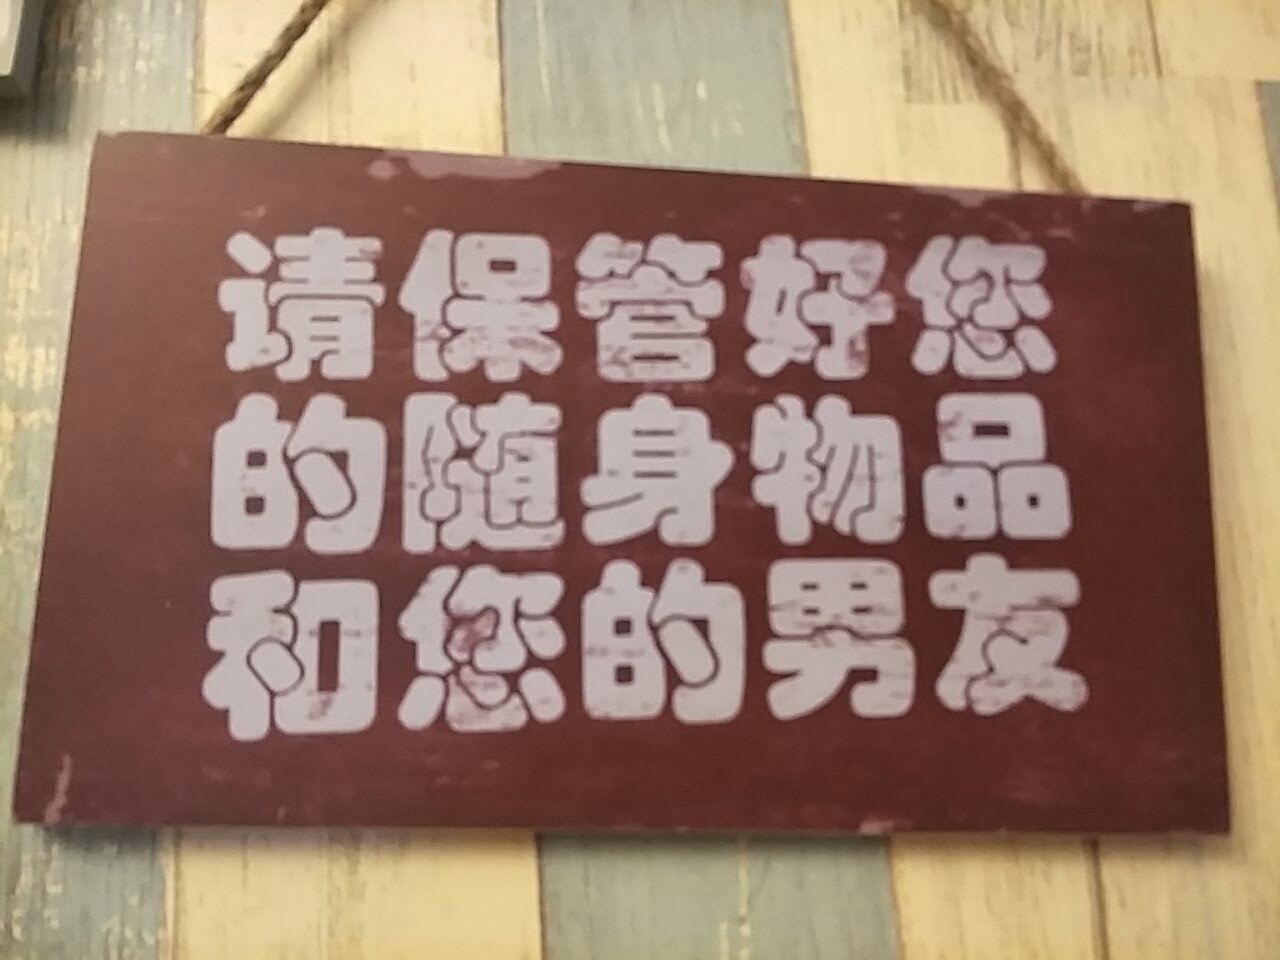 请保管好您
的随身物品
和您的男友